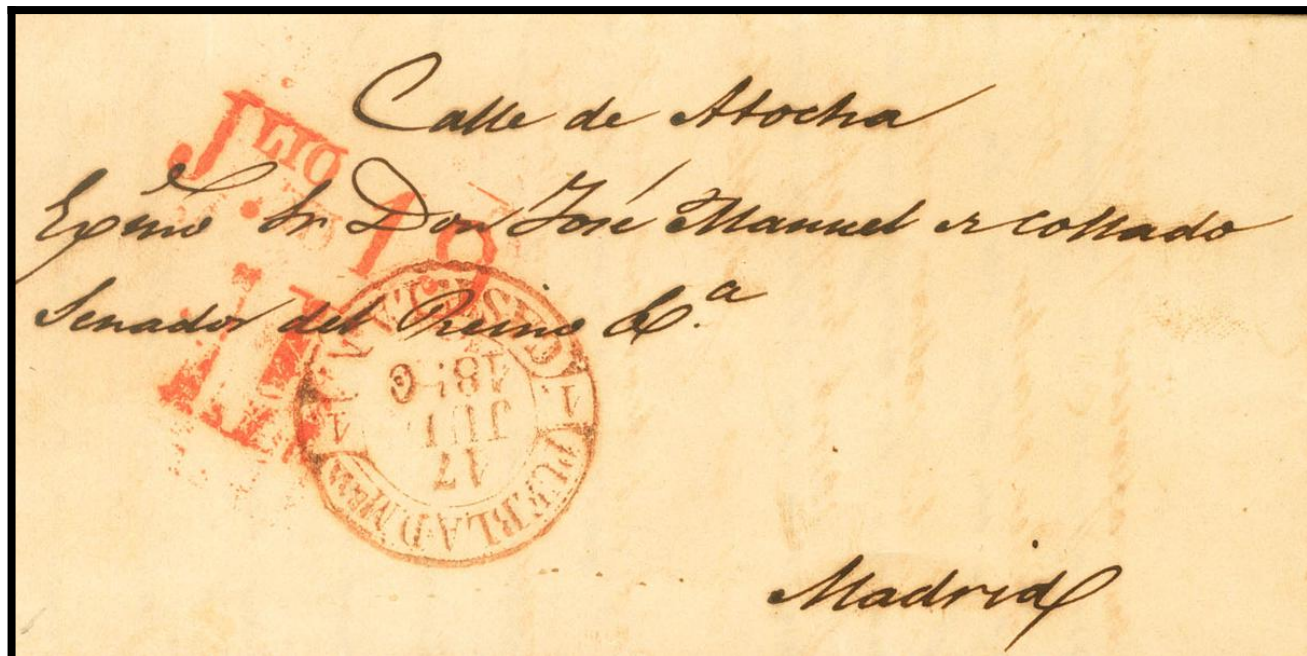 Calle de Atocha
Exmo Sr Don José Manuel de Collado
Senador del Reino &ª
Madrid
JLIO
19
17
JUL
PUEBLA D
1
1